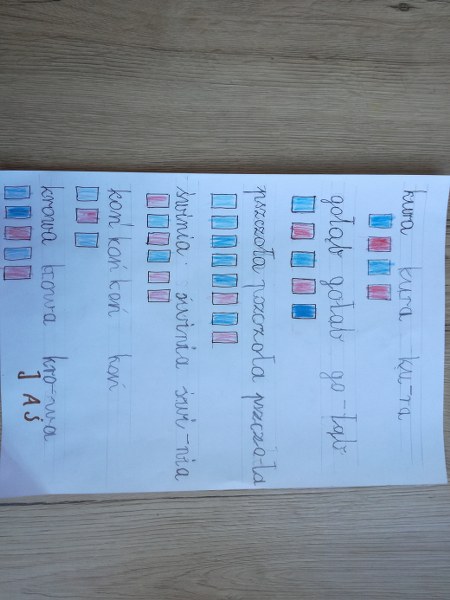 kura kura ku-ra
gołąb gołąb go-łąb
pszczoła pszczoła pszczo-ła
świnia świnia świ-nia
koń koń koń koń
krowa krowa kro-wa
JAŚ